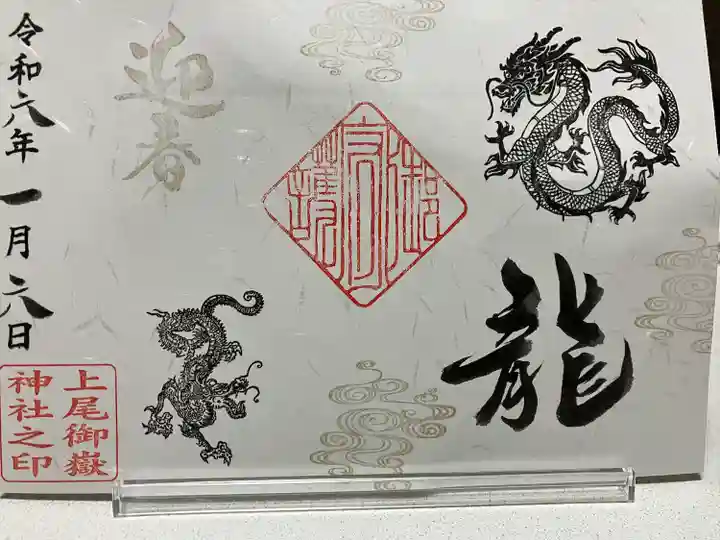 龍
迎春
令和六年一月六日
上尾御嶽
神社之印